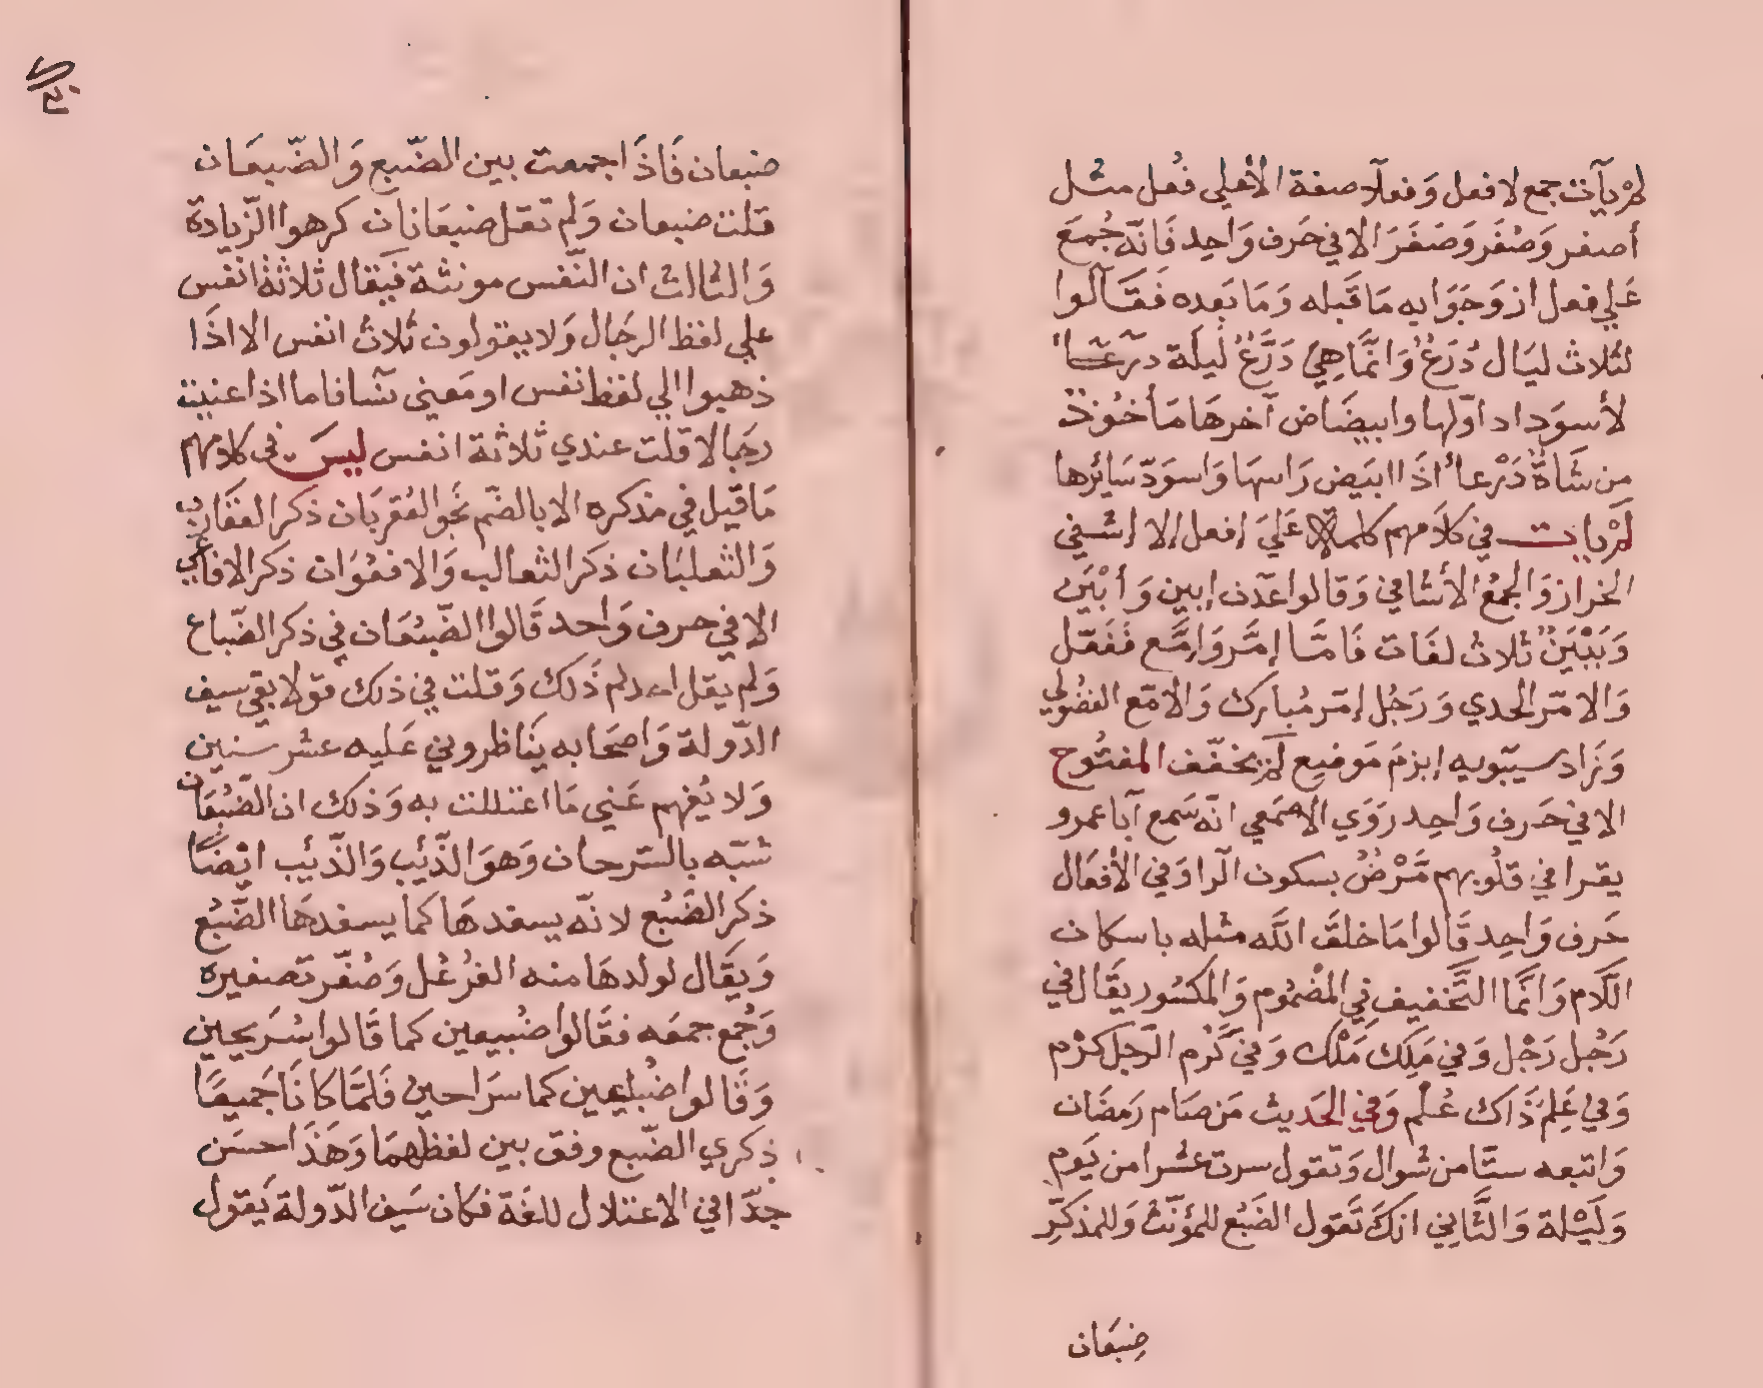 لم يآت جمع لافعل وَفعلآء صفة الأعلي فُعل مثل
أصفر وَصُفَر وَصَفَرَ الا في حَرف وَاحِد فَانّه جُمعَ
عَلي فعل ازوَجَوَا به مَا قَبله وَمَا بَعده فَقَالوا
لثلاث ليَال دُرَعٌ وَانّمَا هِيَ دَرَّعٌ لَيلَة درَعَا
لأسوَداد اوّلها وابيضَاض آخرهَا مَأخُوذ
من شَاةٌ دَرْعاُ اذَا ابيَض رَاسهَا وَاسوَدّ سَائرها
لمَ يات في كلَامهم كلمة عَليَ إفعل إلا إشفي
الخراز وَالجمُع الأشافي وَقالوا عَدَن إبين وَأبْيَن
وَيَبْيَنٌ ثلاث لغَات فَامَّا إمَّر وَإمَّع فَفَعّل
وَالامّر الجدي وَرَجُل إمّر مُبارَك وَالامّع الفضُولي
وَزَاد سيبّويه إبزمَ مَوضِع لم يخفّف المفتُوح
الا في حَرف وَاحِد رَوَي الاصمَعي انّه سَمع آبا عمرو
يقرا في قلُوبهم مَّرْضٌ بسكون الّرا وَفي الأفعَال
حَرف وَاحِد قَالوا مَا خلقَ اللّه مثله باسكان
اللّام وَانَّما التَّخفيف في المضْمُوم وَالمكسُور يقَال في
رَجُل رَجْل وَفي مَلِك مَلْك وَفي كَرُم الّرجل كرْم
وَفي عَلِمَ ذَاك عُلْم وَفي الحَديث مَن صَام رَمضَان
وَاتبعه ستّا من شوال وَتقول سرت عشرا من يَوم
وَلَيْلة وَالثّاني انكَ تَقول الضَبُع للمؤنّث وَللمذكّر
ضِبعَان
ضبعان فَاذَا جمعت بين الضّبع وَالضّبعَان
قلت ضبعان وَلم تقل ضبعَانان كرهوا الزّيادة
وَالثالث ان النّفس مونثة فيقال ثلاثة انفس
علي لفظ الرجَال وَلا يقولون ثلاث انفس الا اذَا
ذهبوا الي لفظ نفس او مَعني نسا فاما اذا عنيت
رجَالا قلت عندي ثلاثة انفس ليسَ في كلامهم
مَا قيّل في مذكره الا بالضّم نحَو العُقربَان ذكر العقَارب
وَالثعلبَان ذكر الثعالب وَالافعُوَان ذكر الافاعي
الا في حرف وَاحد قَالوا الضّبعَان في ذكر الضّباع
وَلم يقل احد لم ذَلك وَقلت في ذلك قولا بقي سيف
الدّولة وَاصحَابه يَناظروني عَليه عشر سنين
وَلا يُفهم عَني مَا اعتللت به وَذلك ان الضّبْعَان
شبّه بالسّرحان وَهوَ الذّئب وَالذّئب ايْضًا
ذكر الضَبُع لانّه يسفدهَا كمَا يسفدهَا الضّبُع
وَيقَال لولدهَا منه الفرُعُل وَصُغّر تصغيره
وَجُمع جمعَه فقَالوا ضُبيعين كما قَالوا سُرَيحين
وَقَالوا ضبُليعين كما سرَاحين فَلمّا كانَا جَميعًا
ذكري الضّبع وفق بين لفظهمَا وَهَذَا احسَن
جدّا في الاعتلال للغَة فكان سَيف الدّولة يَقول